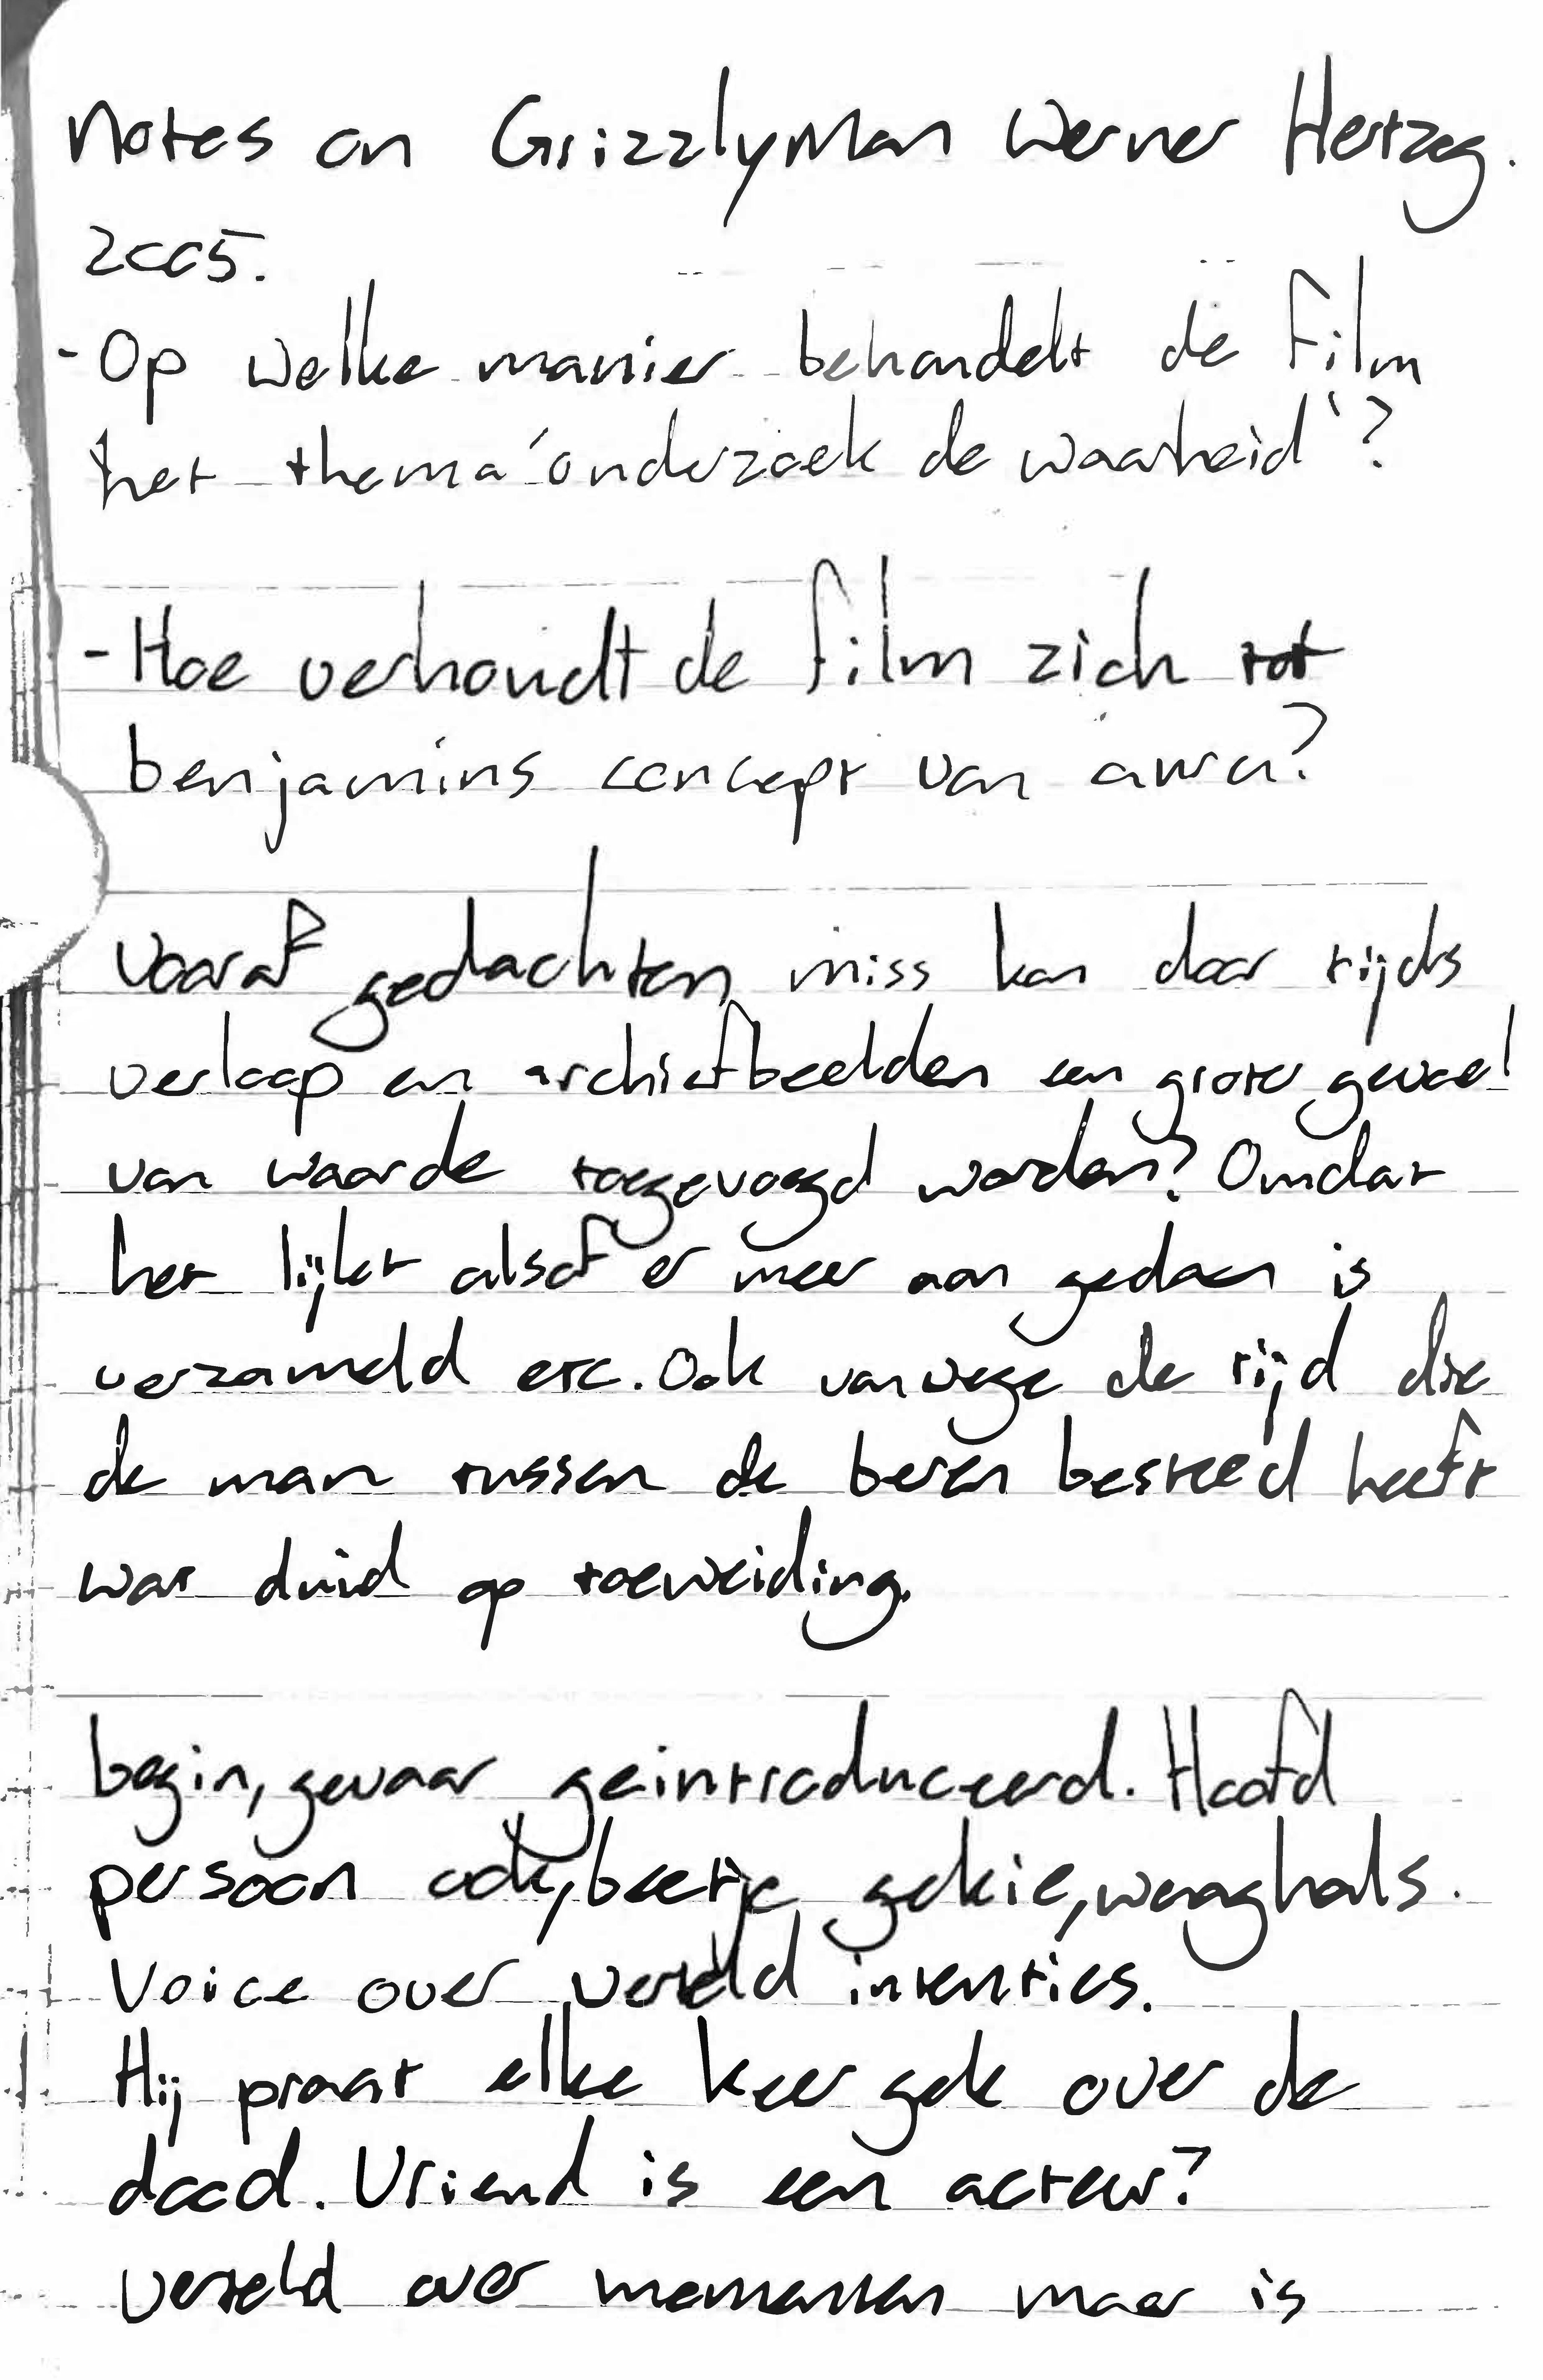 Notes on GrizzlyMan Werner Hertzog.
2005.
- Op welke manier behandelt de film
het thema 'onderzoek de waarheid'?
- Hoe verhoudt de film zich tot
benjamins concept van aura?
Vooraf gedachten miss kan door tijds
verloop en archiefbeelden een groter gevoel
van waarde toegevoegd worden? Omdat
het lijkt alsof er meer aan gedaan is
verzameld etc. Ook vanwege de tijd die
de man tussen de beren besteed heeft
wat duid op toeweiding.
begin, gevaar geintroduceerd. Hoofd
persoon ook, beetje gekkie, waaghals.
Voice over verteld intenties.
Hij praat elke keer gek over de
dood. Vriend is een acteur?
verteld over momenten maar is